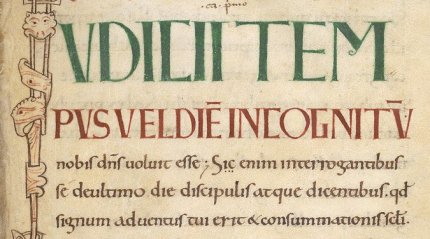 .ca. pmo
VDICII TEM
PVS VEL DIĒ INCOGNITŪ
nobis dn̄s voluit esse; Sic enim interrogantibus
se deultimo die discipulis atque dicentibus. qd̄
signum adventus tui erit & consummationis scl̄i.